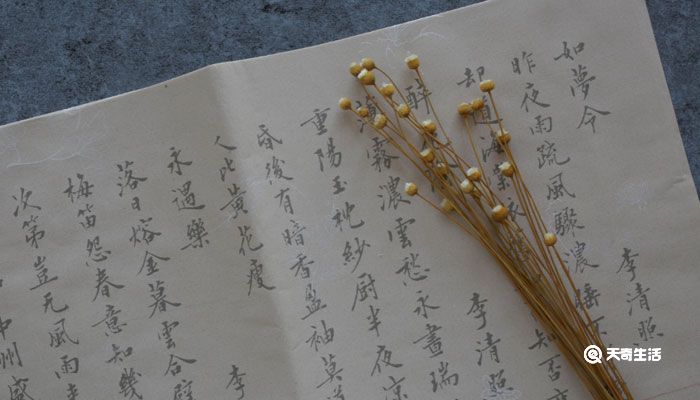 如夢令 李清照
昨夜雨疏風驟濃睡不
却道海棠依 知否
醉 李清照
薄霧濃雲愁永晝瑞
重陽玉枕紗厨半夜涼
昏後有暗香盈袖莫
人比黃花瘦
永遇樂 李
落日熔金暮雲合璧
梅笛怨春意知幾
次第豈无風雨
中州盛
天奇生活